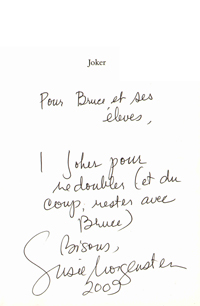 Joker
Pour Bruce et ses
élèves,
1 Joker pour
redoubler (et du
coup, rester avec
Bruce)
Bisous,
Susie Morgenstern
2009